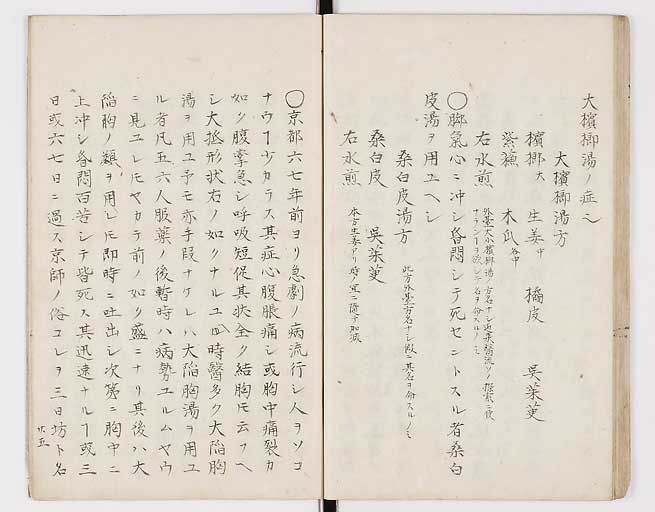 大檳榔湯ノ症也
大檳榔湯方
檳榔大 生姜中 橘皮 呉茱萸
紫蘓 木瓜各中
右水煎
〇脚氣心ニ冲シ昏悶シテ死セントスル者桑白
皮湯ヲ用ユヘシ
桑白皮湯方 此方外臺方名ナシ假ニ其名ヲ命スルノミ
桑白皮 呉茱萸
右水煎 本方生姜アリ時ノ宜ニ隨テ加減
〇京都六七年前ヨリ急劇ノ病流行シ人ヲソコ
ナウヿ少カラス其症心腹脹痛シ或胸中痛裂カ
如ク腹拿急シ呼吸短促其状全ク結胸トモ云フヘ
シ大抵形状右ノ如クナルユヘ時醫多ク大陷胸
湯ヲ用ユ予モ亦手段ナケレハ大陷胸湯ヲ用ユ
ル者凡五六人服藥ノ後暫時ハ病勢ユルムヤウ
ニ見ユレトモヤカラ前ノ如ク盛ニナリ其後ハ大
陷胸ノ類ヲ用レトモ即時ニ吐出シ次第ニ胸中ニ
上冲シ昏悶百苦シテ皆死ス其迅速ナルヿ或三
日或六七日ニ過ス京師ノ俗コレヲ三日坊ト名
廿五